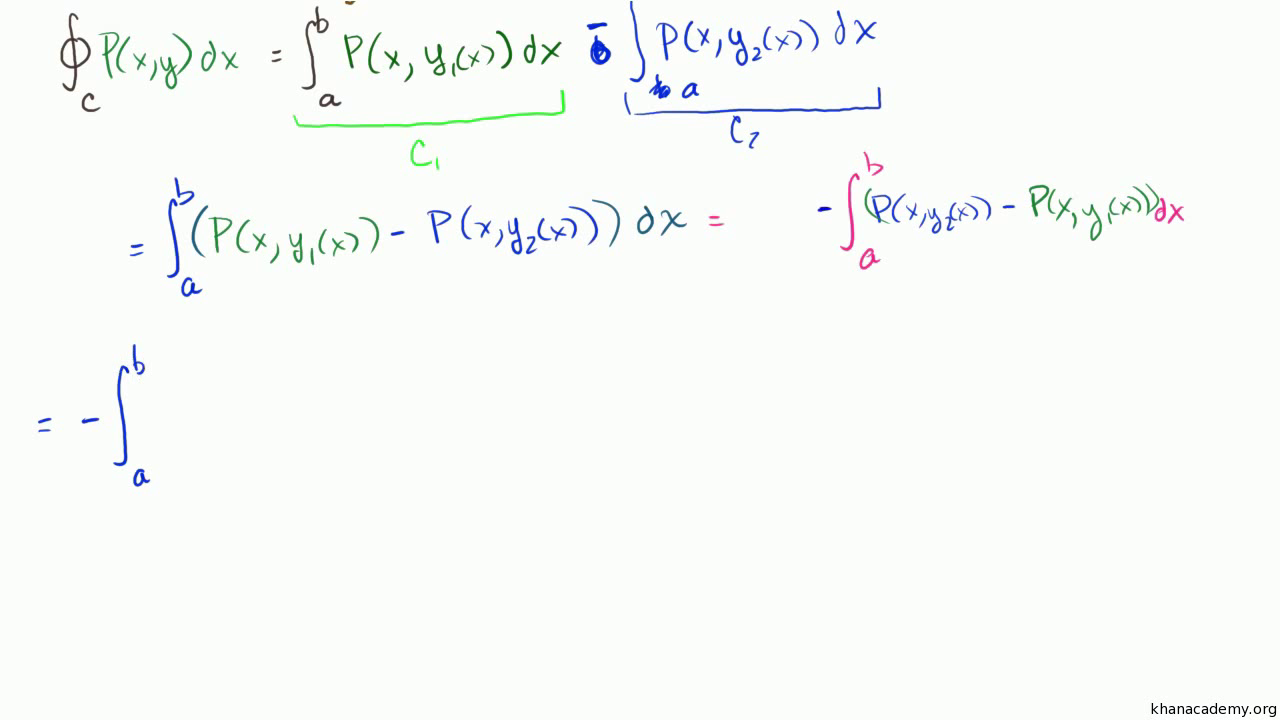 ∮_C P(x,y) dx = ∫_a^b P(x, y₁(x)) dx - ∫_a P(x, y₂(x)) dx
C₁ C₂
= ∫_a^b (P(x, y₁(x)) - P(x, y₂(x))) dx = - ∫_a^b (P(x, y₂(x)) - P(x, y₁(x))) dx
= - ∫_a^b
khanacademy.org